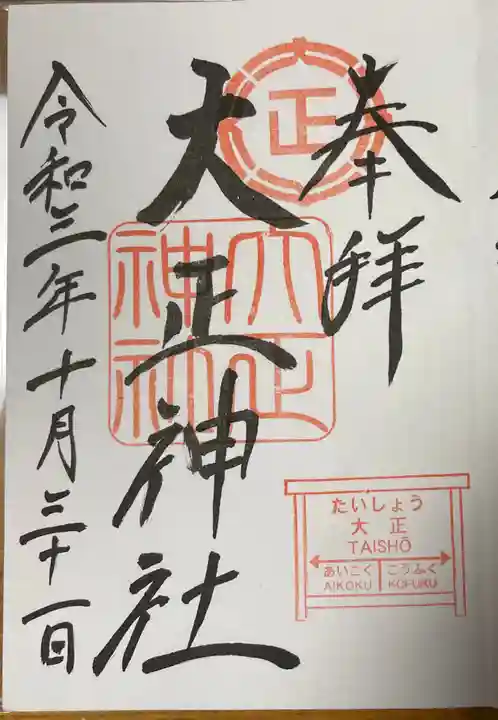 奉拝
大正神社
令和三年十月三十一日
正
大正
神社
たいしょう
大正
TAISHŌ
あいこく
AIKOKU
こうふく
KOFUKU